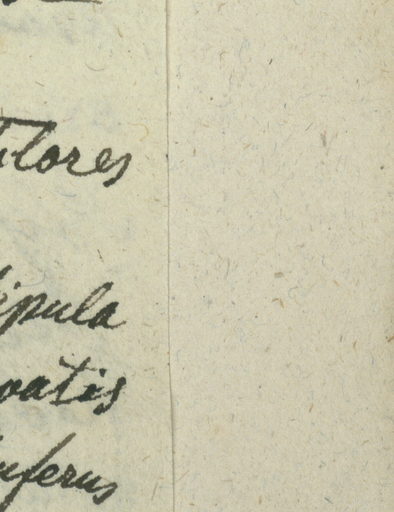 flores
ipula
oatis
uferus